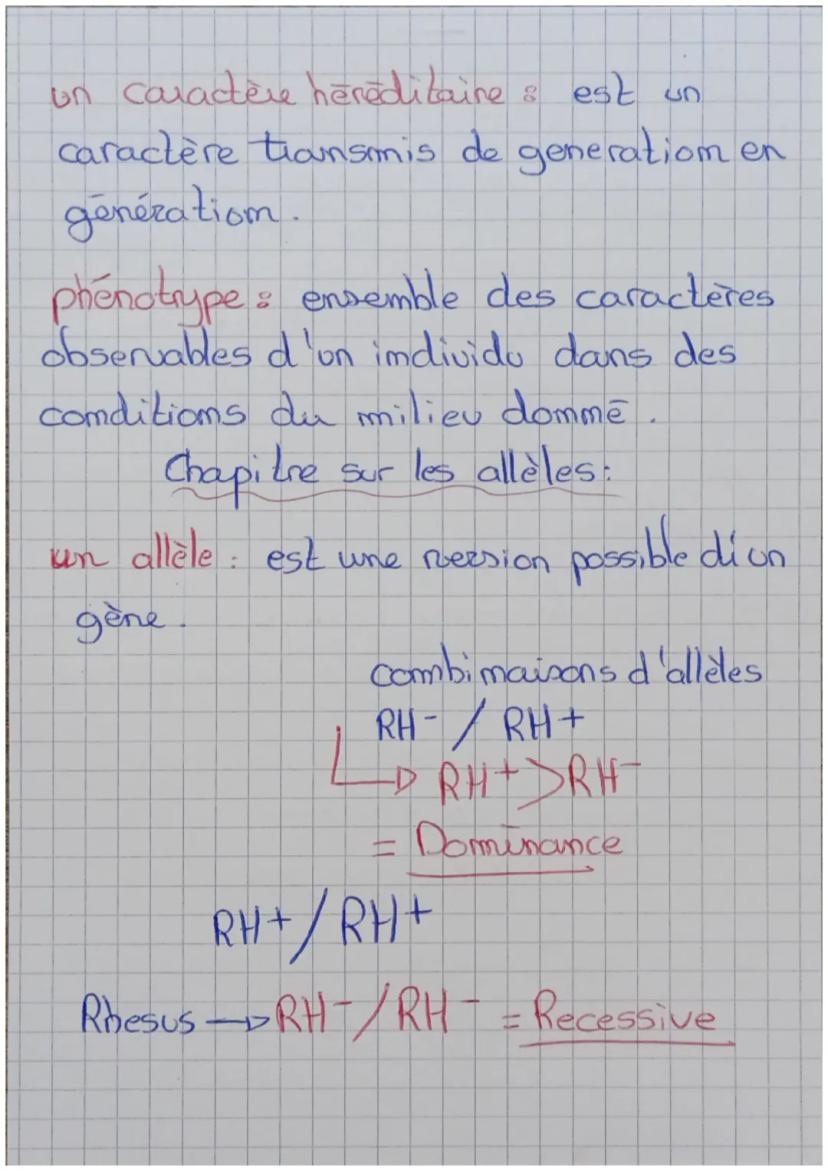 un caractère héréditaire : est un
caractère transmis de generation en
génération.
phénotype : ensemble des caractères
observables d'un individu dans des
conditions du milieu donné.
Chapitre sur les allèles :
un allèle : est une version possible d'un
gène.
combinaisons d'allèles
RH- / RH+
→ RH+ > RH-
= Dominance
RH+ / RH+
Rhesus → RH- / RH- = Recessive